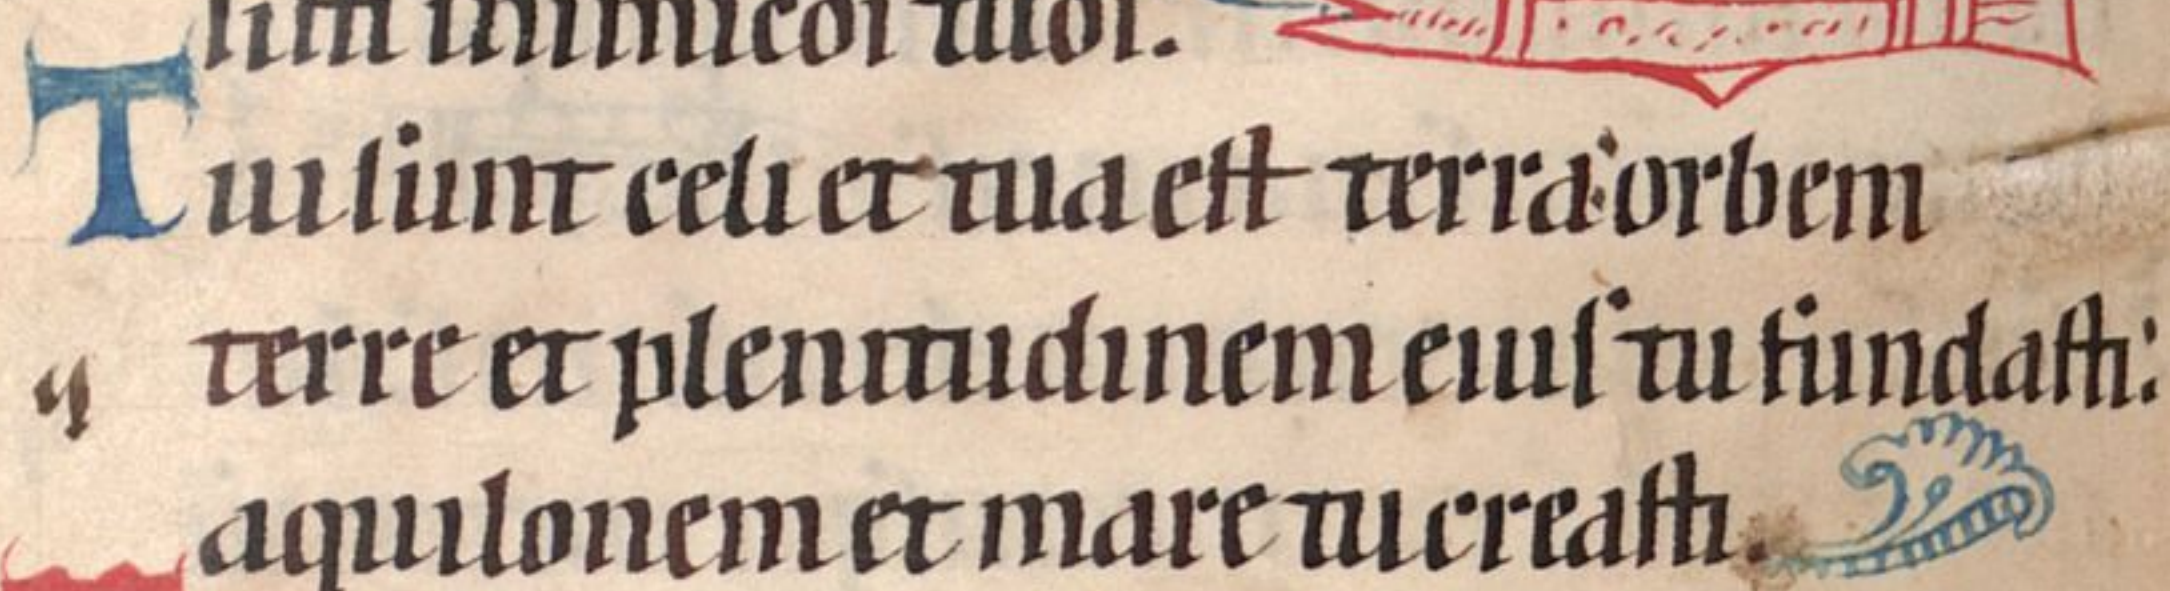 sim inimicos tuos.
Tui sunt celi et tua est terra: orbem
terre et plenitudinem eius tu fundasti:
aquilonem et mare tu creasti.